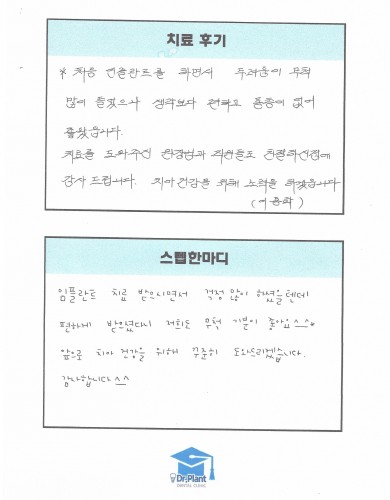 치료 후기
* 처음 임플란트를 하면서 두려움이 무척
많이 들었으나 생각보다 편하고 통증이 없어
좋았습니다.
치료를 도와주신 원장님과 직원들도 친절하신점에
감사 드립니다. 치아건강을 위해 노력을 하겠습니다
(이용학)
스텝한마디
임플란트 치료 받으시면서 걱정 많이 하셨을텐데
편하게 받으셨다니 저희도 무척 기분이 좋아요^^*
앞으로 치아 건강을 위해 꾸준히 도와드리겠습니다.
감사합니다^^
Dr.Plant
DENTAL CLINIC